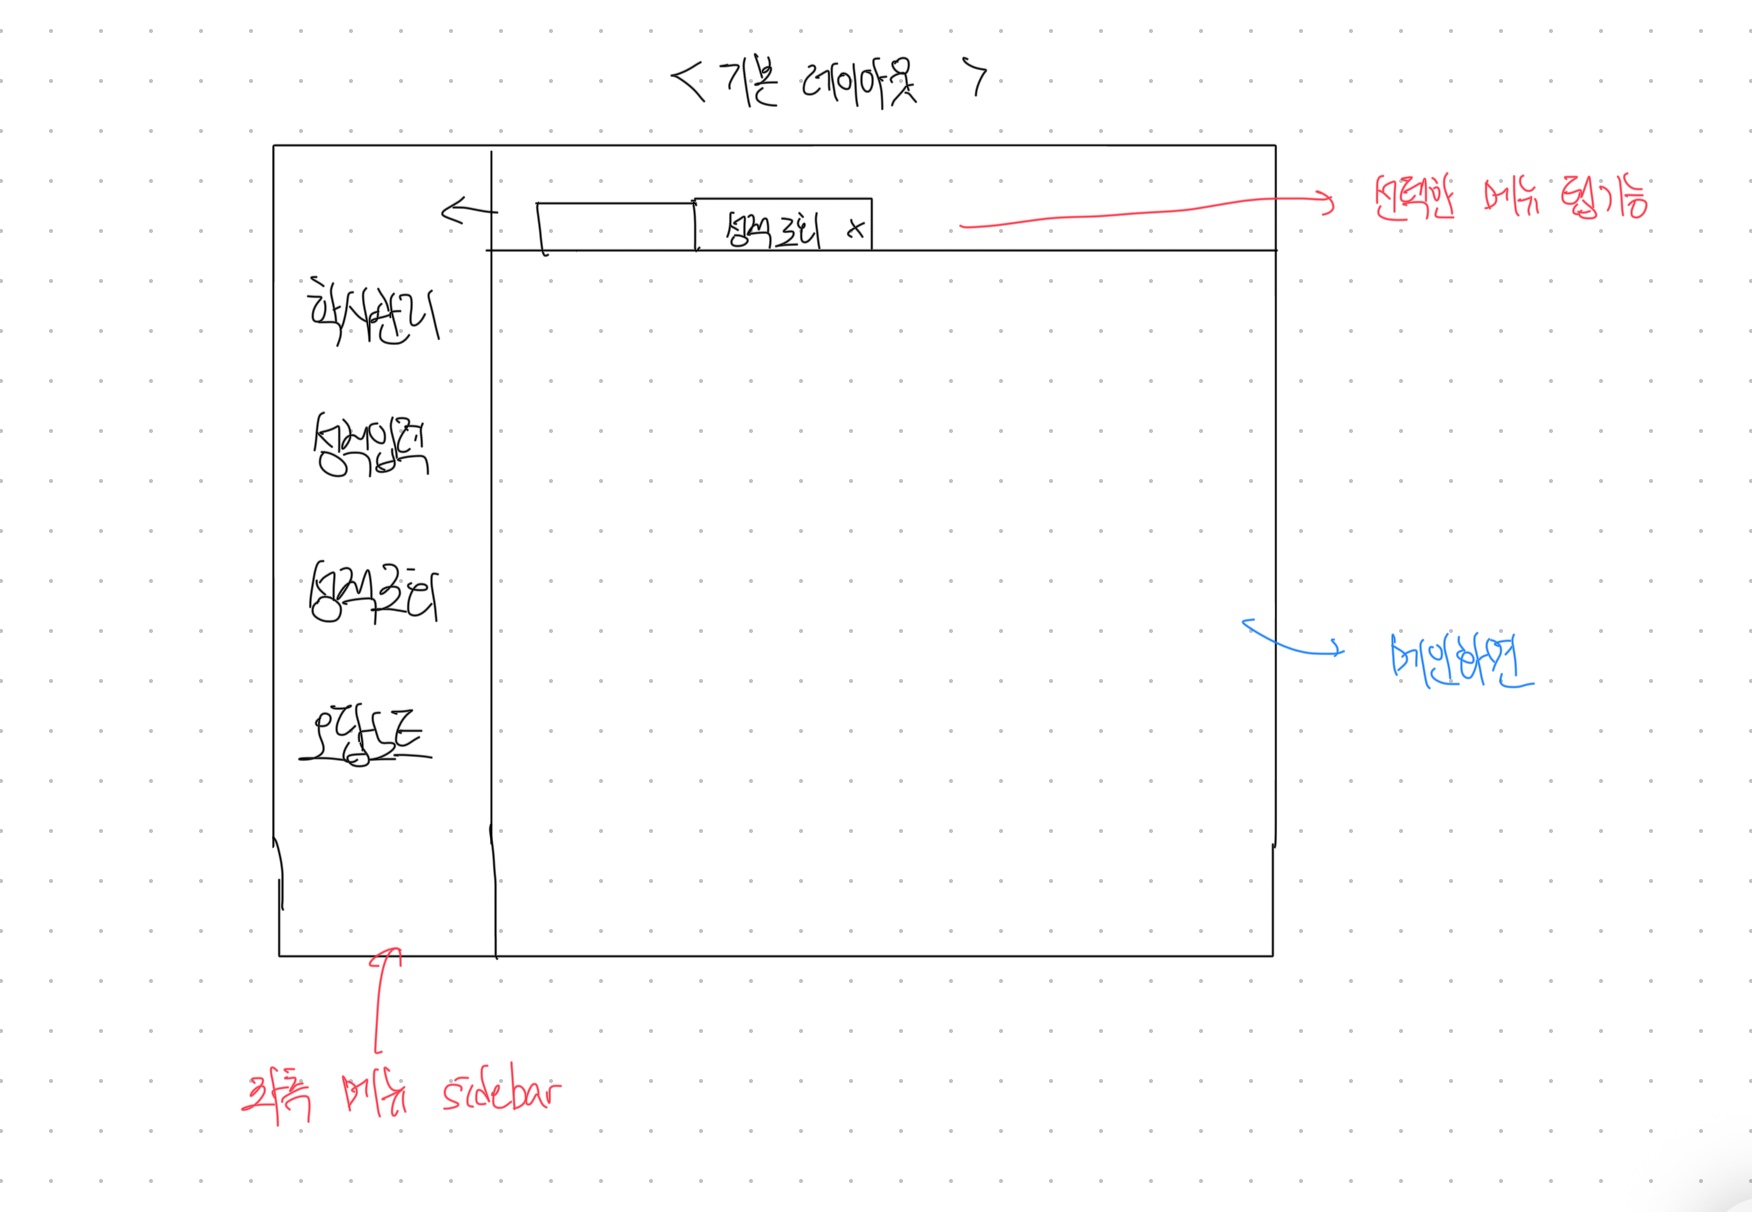 < 기본 레이아웃 >
성적조회 x
선택한 메뉴 탭기능
학사관리
성적입력
성적조회
오답노트
메인화면
좌측 메뉴 sidebar